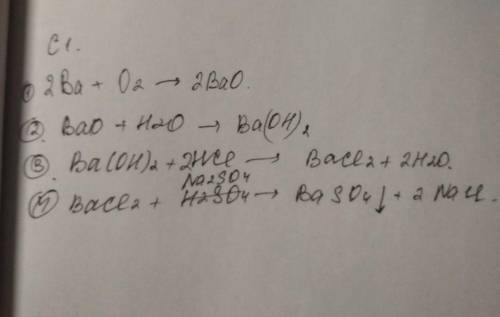 C1.
① 2Ba + O2 → 2BaO.
② BaO + H2O → Ba(OH)2
③ Ba(OH)2 + 2HCl → BaCl2 + 2H2O.
Na2SO4
④ BaCl2 + H2SO4 → BaSO4↓ + 2NaCl.